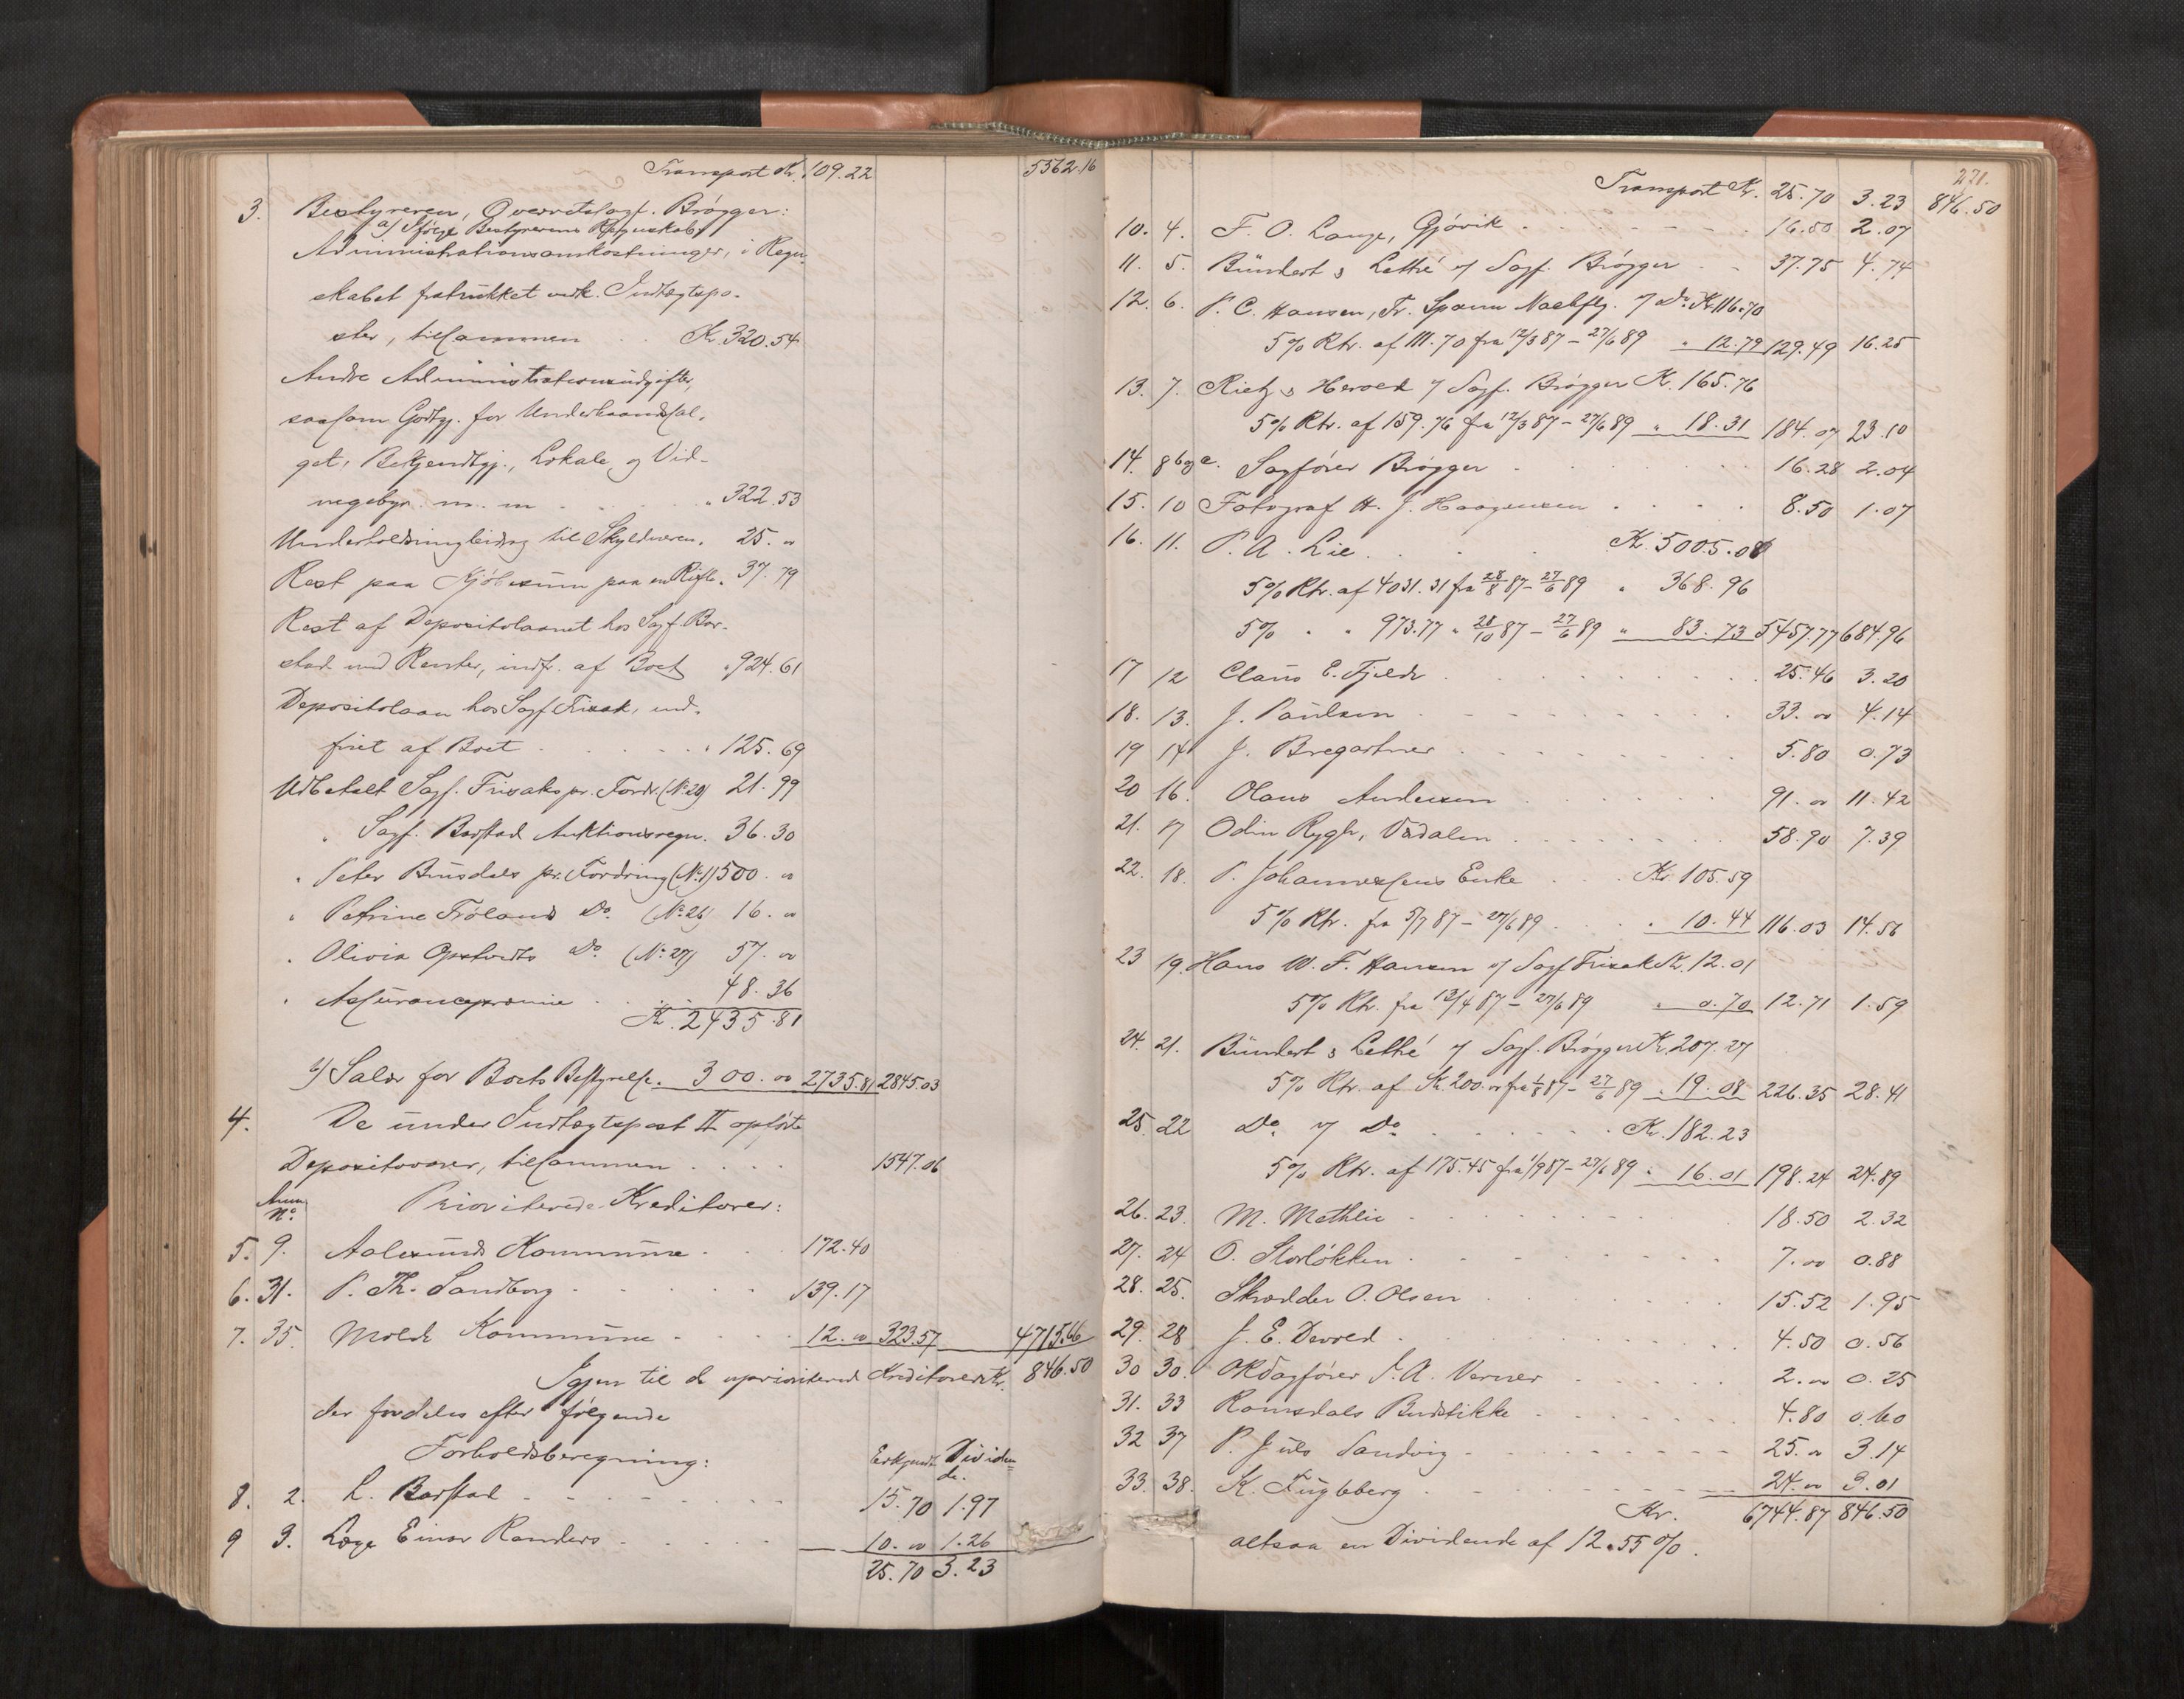 Transport Kr. 109.22 5562.16
3. Bestyreren, Overretssagf. Brøgger:
a) Ifølge Bestyrerens Regnskab,
Administrationsomkostninger, i Regn-
skabet fratrukket vedk. Indtægtspo-
ster, tilsammen Kr. 320.54
Andre Administrationsudgifter,
saasom Godtgj. for Underhaandssal-
get, Bekjendtgj., Lokale og Vid-
negebyr m. m. " 322.53
Underholdningsbidrag til Skyldneren " 25. "
Rest paa Kjøbesum paa en Rifle " 37.79
Rest af Depositolaanet hos Sagf. Bar-
stad med Renter, indfr. af Boet " 924.61
Depositolaan hos Sagf. Frisak, ind-
friet af Boet " 125.69
Udbetalt Sagf. Frisaks pr. Fordr. (No 20) 21.99
" Sagf. Barstad Auktionsregn. 36.30
" Peter Buusdals pr. Fordring (No 1) 500. "
" Petrine Frøland Do. (No 26) 16. "
" Olivia Opstvedts Do. (No 27) 57. "
" Assurancepræmie 48.36
Kr. 2435.81
b) Salær for Boets Bestyrelse " 300. " 2735.81 2845.03
4. De under Indtægtspost II opførte
Depositovarer, tilsammen 1547.06
Anm. No. Prioriterede Kreditorer:
5. 9. Aalesunds Kommune 172.40
6. 31. P. Th. Sandborg 139.17
7. 35. Molde Kommune 12. " 323.57 4715.66
Igjen til de uprioriterede Kreditorer Kr. 846.50
der fordeles efter følgende
Forholdsberegning: Erkjendt Dividen-
de.
8. 2. L. Barstad 15.70 1.97
9 3. Læge Einar Randers 10. " 1.26
25.70 3.23
271.
Transport Kr. 25.70 3.23 846.50
10. 4. F. O. Lange, Gjøvik 16.50 2.07
11. 5. Bündert & Lethé v/ Sagf. Brøgger 37.75 4.74
12. 6. P. C. Hansen, Fr. Spann Nachflg. v/ Do. Kr. 116.70
5% Rtr. af 111.70 fra 12/3 87 - 27/6 89 " 12.79 129.49 16.25
13. 7. Rietz & Herold v/ Sagf. Brøgger Kr. 165.76
5% Rtr. af 159.76 fra 12/3 87 - 27/6 89 " 18.31 184.07 23.10
14. 8 b og c. Sagfører Brøgger 16.28 2.04
15. 10 Fotograf H. J. Haagensen 8.50 1.07
16. 11. P. A. Lie Kr. 5005.08
5% Rtr. af 4031.31 fra 28/8 87 - 27/6 89 " 368.96
5% " " 973.77 " 28/10 87 - 27/6 89 " 83.73 5457.77 684.96
17 12 Claus E. Fjeld 25.46 3.20
18. 13. J. Paulsen 33. " 4.14
19 14 J. Bregartner 5.80 0.73
20 16. Olaus Andersen 91. " 11.42
21. 17 Odin Rygh, Vadalen 58.90 7.39
22. 18. P. Johannessens Enke Kr. 105.59
5% Rtr. fra 5/7 87 - 27/6 89 " 10.44 116.03 14.56
23 19. Hans W. F. Hansen v/ Sagf. Frisak Kr. 12.01
5% Rtr. fra 13/4 87 - 27/6 89 " 0.70 12.71 1.59
24. 21. Bündert & Lethé v/ Sagf. Brøgger Kr. 207.27
5% Rtr. af Kr. 200. " fra 1/8 87 - 27/6 89 " 19.08 226.35 28.41
25. 22 Do. v/ Do. Kr. 182.23
5% Rtr. af 175.45 fra 1/9 87 - 27/6 89 " 16.01 198.24 24.89
26. 23. M. Methlie 18.50 2.32
27. 24 O. Storløkken 7. " 0.88
28. 25. Skrædder O. Olsen 15.52 1.95
29. 28 J. E. Devold 4.50 0.56
30 30. ORsagfører J. A. Verner 2. " 0.25
31. 33 Romsdals Budstikke 4.80 0.60
32 37 P. Juls Sandvig 25. " 3.14
33. 38. K. Fugleberg 24. " 3.01
Kr. 6744.87 846.50
altsaa en Dividende af 12.55%.